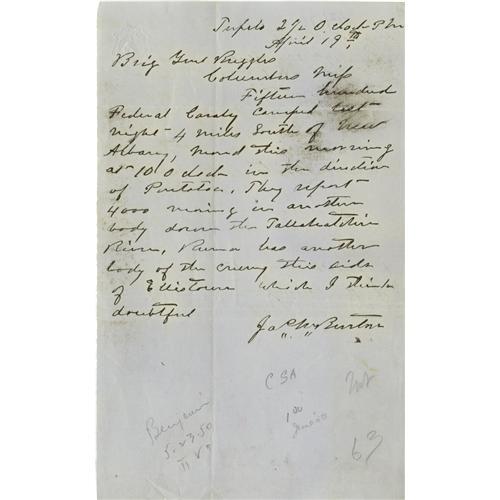 Tupelo 2 1/2 O.clock P M
April 19th
Brig Genl Ruggles
Columbus Miss
Fifteen hundred
Federal Cavalry camped last
night 4 miles South of New
Albany, moved this morning
at 10 O clock in the direction
of Pontotoc. They report
4000 moving in another
body down the Tallahatchie
River, Rumor has another
body of the enemy this side
of Ellistown which I think
doubtful
Burton
CSA
Benjamin
5.23.50
100
63